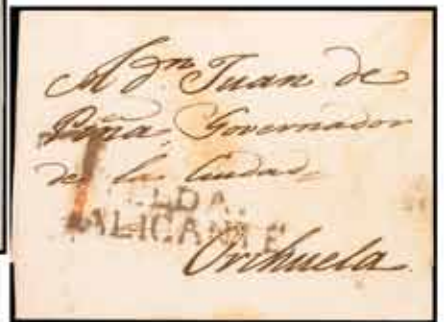 A dn Juan de
Peña, Governador
de la Ciudad,
ELDA.
ALICANTE
Orihuela.